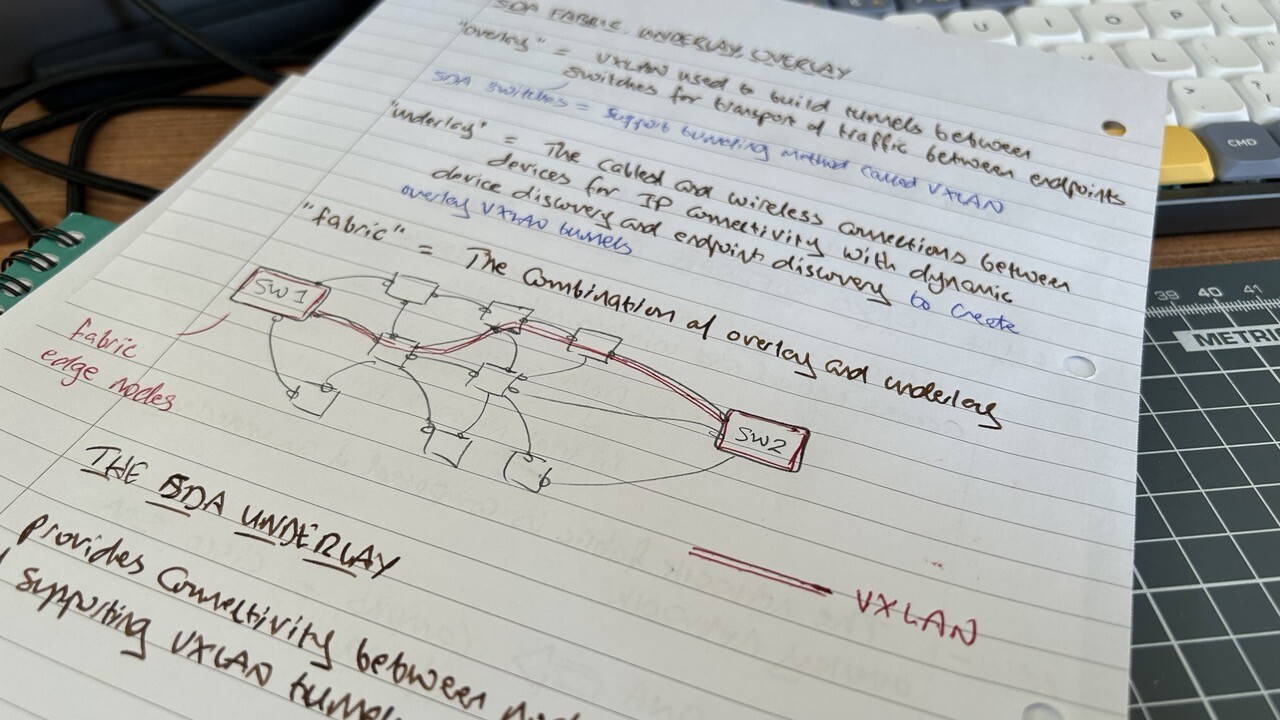 SDA FABRIC, UNDERLAY, OVERLAY
"overlay" = VXLAN used to build tunnels between
switches for transport of traffic between endpoints
SDA switches = support tunneling method called VXLAN
"underlay" = The cabled and wireless connections between
devices for IP connectivity with dynamic
device discovery and endpoint discovery to create
overlay VXLAN tunnels
"fabric" = The combination of overlay and underlay
SW1
fabric
edge nodes
SW2
VXLAN
THE SDA UNDERLAY
provides connectivity between
supporting VXLAN
U
I
O
P
L
CMD
39 40 41
METRI